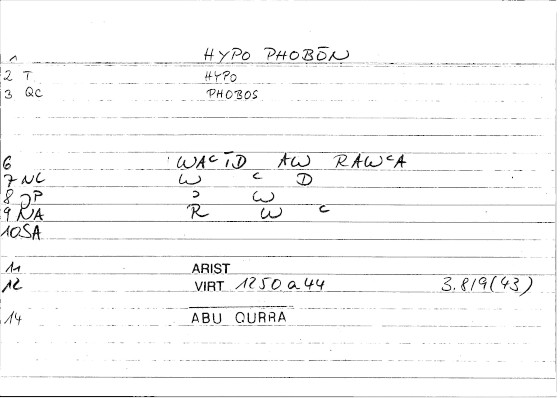 1 HYPO PHOBŌN
2 T HYPO
3 QC PHOBOS
6 WAcĪD AW RAWcA
7 NC W c D
8 JP ɔ W
9 NA R W c
10 SA
11 ARIST
12 VIRT 1250 a 44 3.8/9(43)
14 ABU QURRA